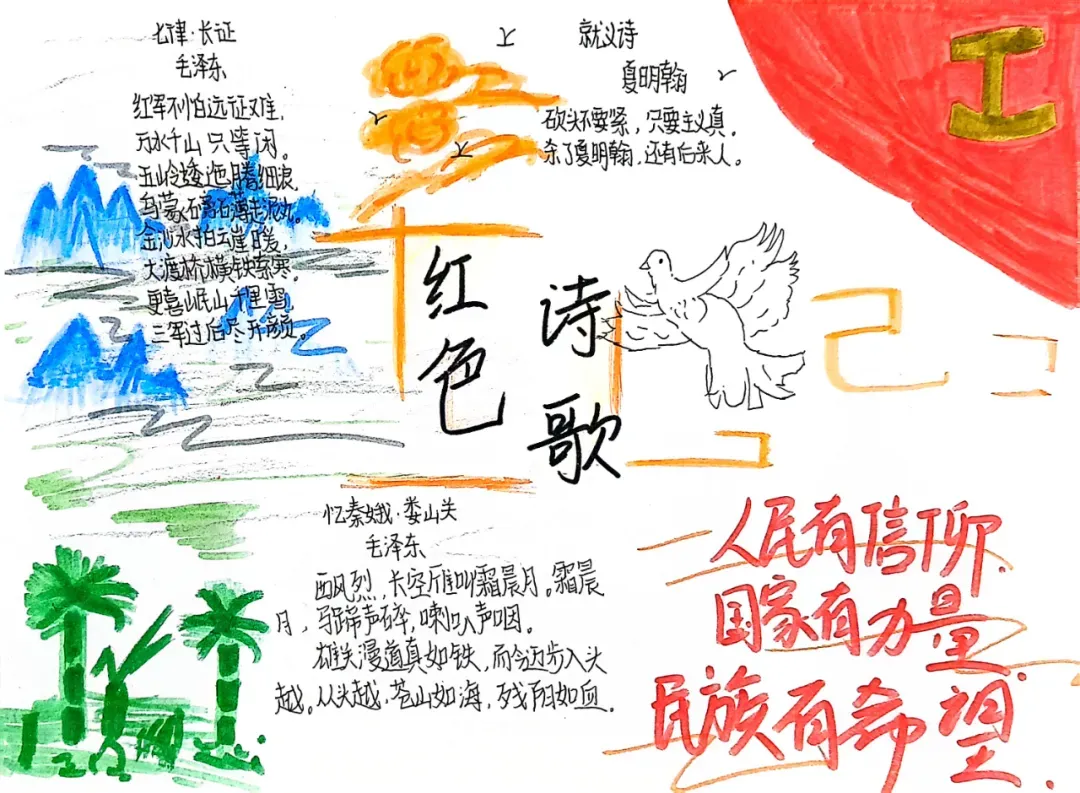 七律·长征
毛泽东
红军不怕远征难,
万水千山只等闲。
五岭逶迤腾细浪,
乌蒙磅礴走泥丸。
金沙水拍云崖暖,
大渡桥横铁索寒。
更喜岷山千里雪,
三军过后尽开颜。
就义诗
夏明翰
砍头不要紧,只要主义真。
杀了夏明翰,还有后来人。
红色
诗歌
忆秦娥·娄山关
毛泽东
西风烈,长空雁叫霜晨月。霜晨
月,马蹄声碎,喇叭声咽。
雄关漫道真如铁,而今迈步从头
越。从头越,苍山如海,残阳如血.
人民有信仰.
国家有力量.
民族有希望.